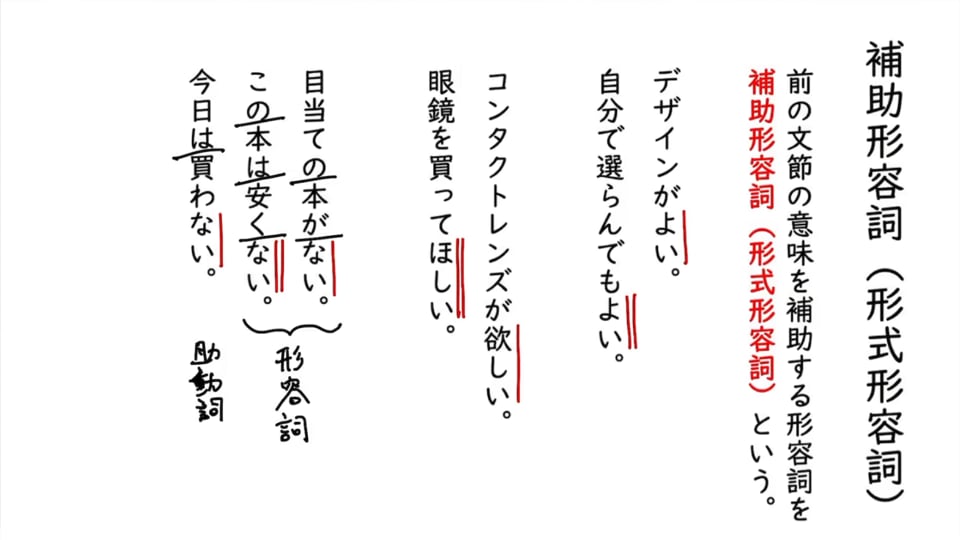 補助形容詞（形式形容詞）
前の文節の意味を補助する形容詞を
補助形容詞（形式形容詞）という。
デザインがよい。
自分で選らんでもよい。
コンタクトレンズが欲しい。
眼鏡を買ってほしい。
目当ての本がない。
この本は安くない。
形容詞
今日は買わない。
助動詞